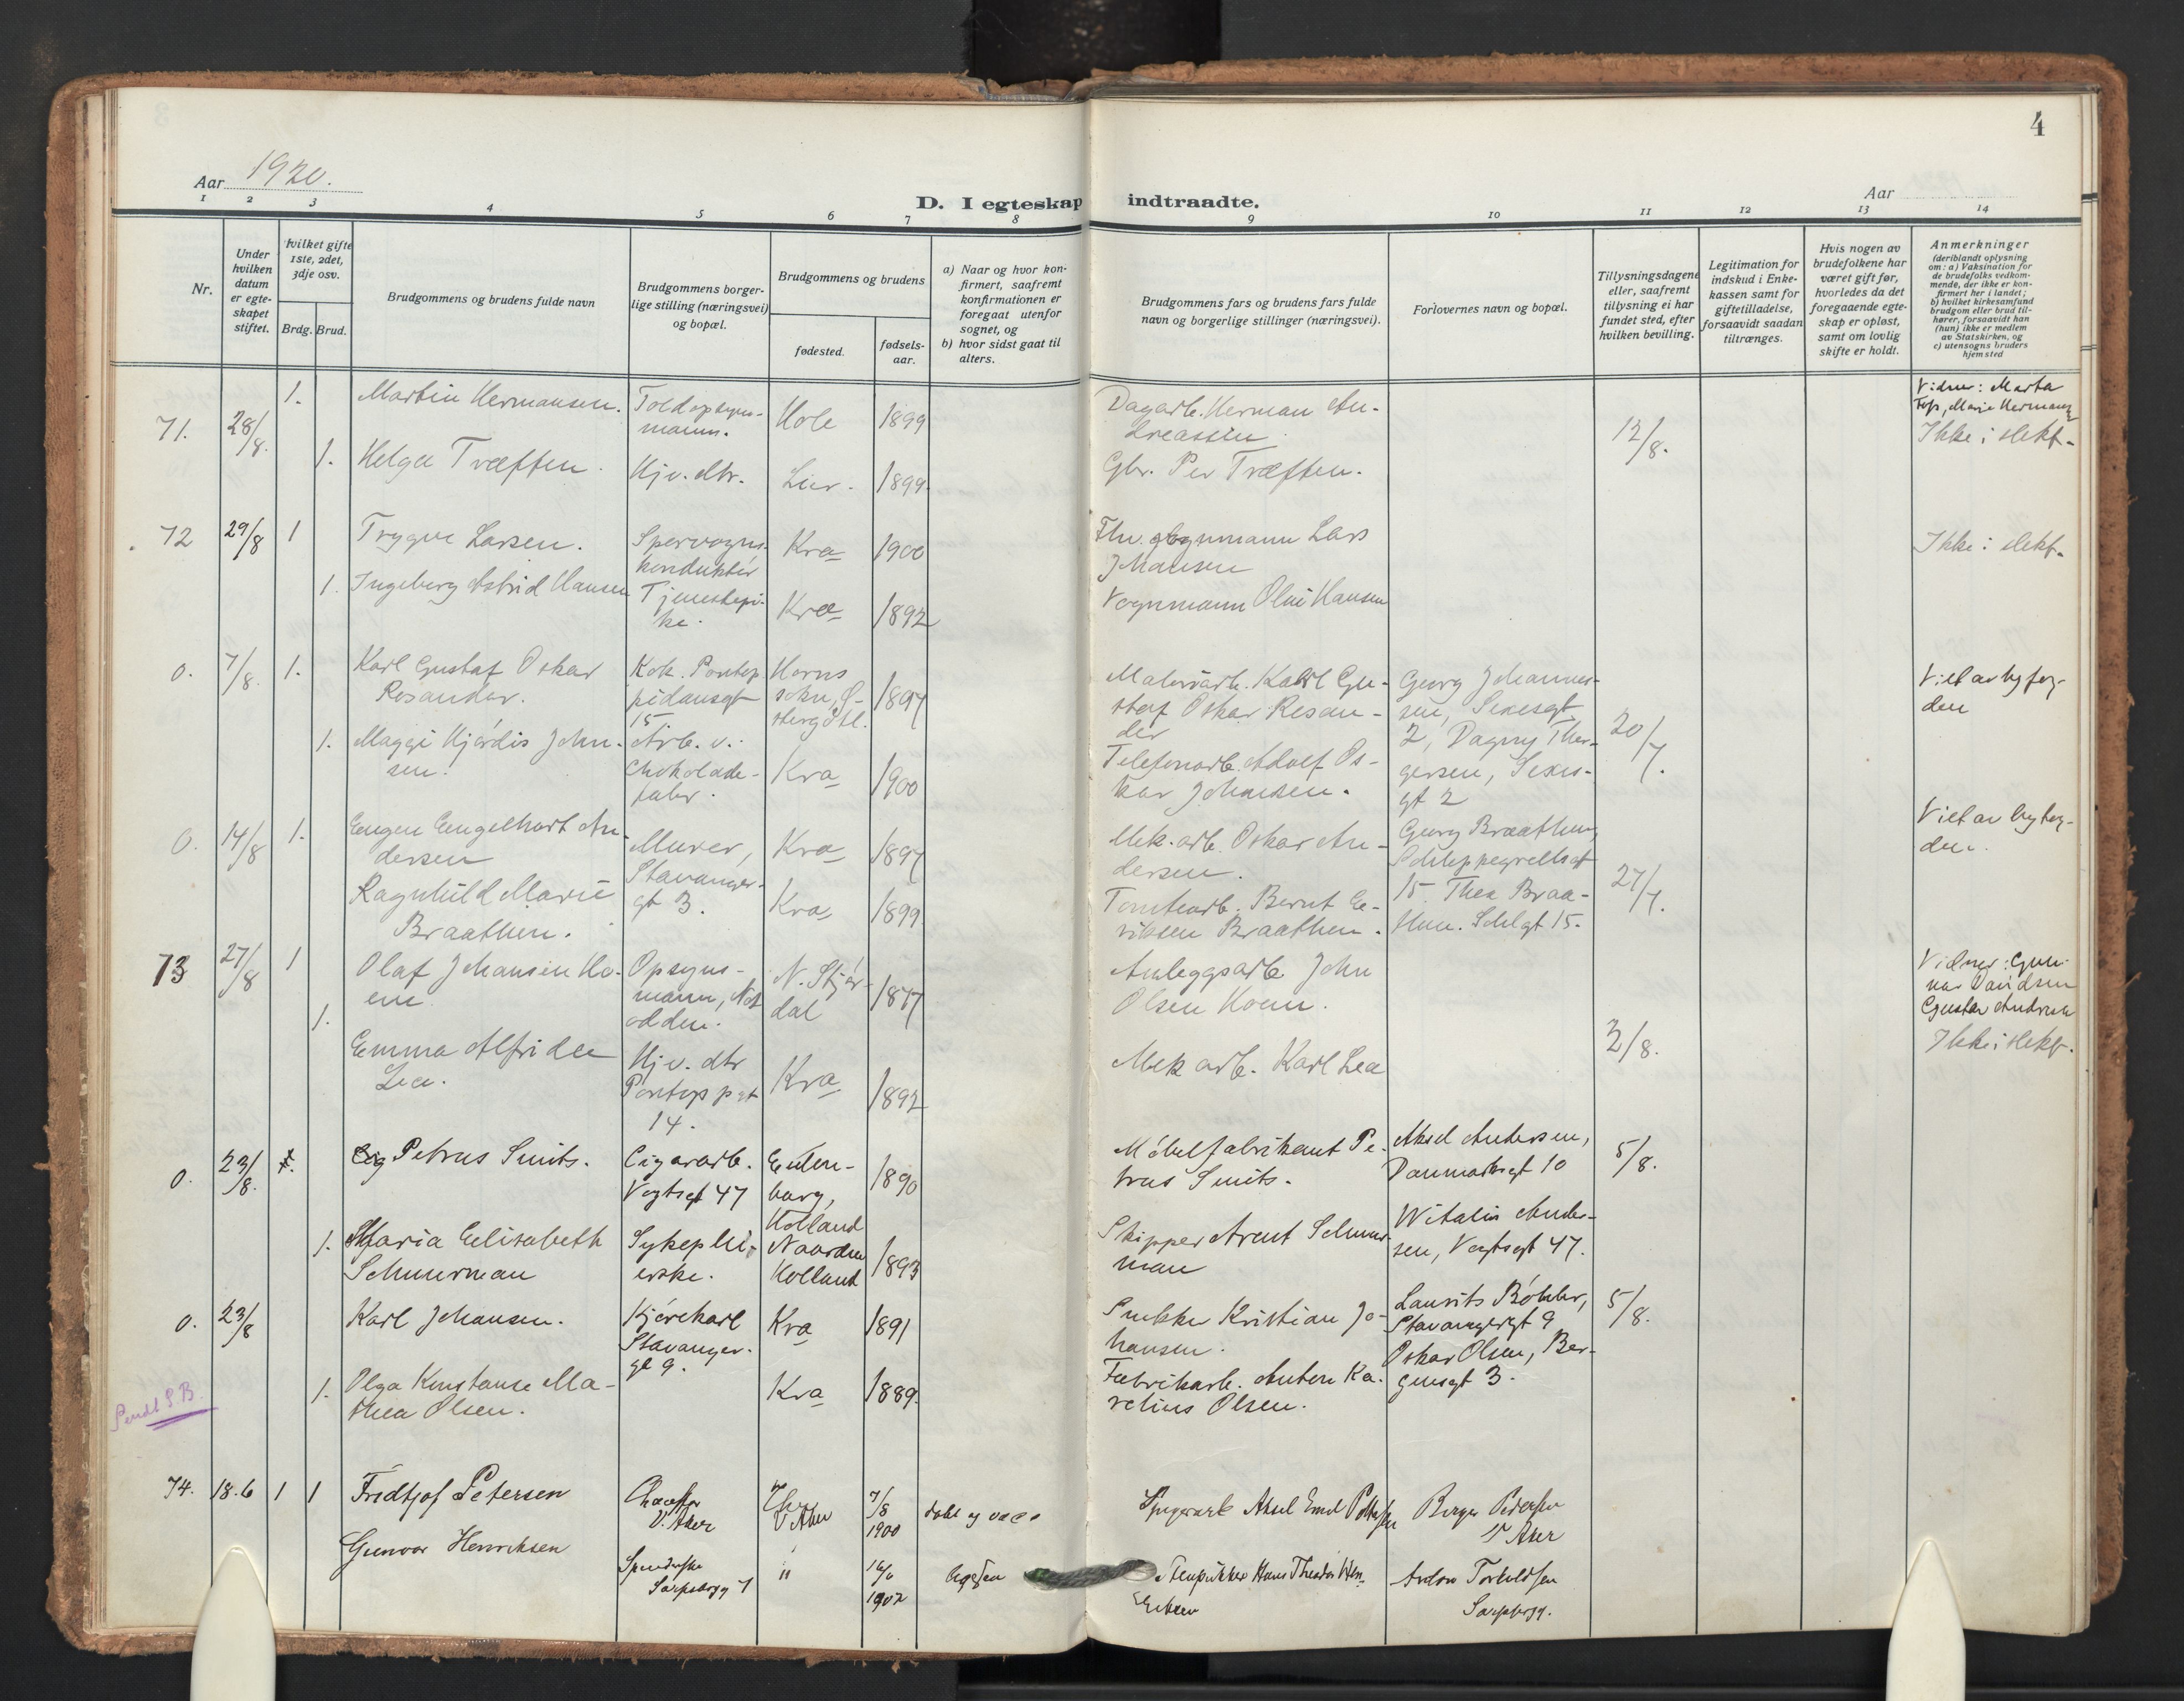 4
Aar 1920.
Aar
D. I egteskap indtraadte.
1 2 3 4 5 6 7 8 9 10 11 12 13 14
Nr.
Under hvilken datum er egteskapet stiftet.
hvilket gifte 1ste, 2det, 3dje osv.
Brdg. Brud.
Brudgommens og brudens fulde navn
Brudgommens borgerlige stilling (næringsvei) og bopæl.
Brudgommens og brudens
fødested.
fødselsaar.
a) Naar og hvor konfirmert, saafremt konfirmationen er foregaat utenfor sognet, og
b) hvor sidst gaat til alters.
Brudgommens fars og brudens fars fulde navn og borgerlige stillinger (næringsvei).
Forlovernes navn og bopæl.
Tillysningsdagene eller, saafremt tillysning ei har fundet sted, efter hvilken bevilling.
Legitimation for indskud i Enkekassen samt for giftetilladelse, forsaavidt saadan tiltrænges.
Hvis nogen av brudefolkene har været gift før, hvorledes da det foregaaende egteskap er opløst, samt om lovlig skifte er holdt.
Anmerkninger
(deriblandt oplysning om: a) Vaksination for de brudefolks vedkommende, der ikke er konfirmert her i landet; b) hvilket kirkesamfund brudgom eller brud tilhører, forsaavidt han (hun) ikke er medlem av Statskirken, og c) utensogns bruders hjemsted
71. 28/8. 1. Martin Hermansen. Toldopsynsmann. Hole 1899
Dagarb. Herman Andreassen 12/8.
Vidner: Marta
Marie Hermansen
Ikke i slekt.
1. Helga Træften. Hjv. dtr. Lier. 1899.
Gbr. Per Træften.
72 29/8 1 Trygve Larsen. Sporvognskonduktør Kra 1900
Fhv. vognmann Lars Johansen
Ikke i slekt.
1. Ingeborg Astrid Hansen Tjenestepike. Kra 1892
Vognmann Olai Hansen
0. 7/8. 1. Karl Gustaf Oskar Rosander. Kok. Pontoppidansgt 15. 1897
Karl Gustaf Oskar Rosander
Georg Johannessen, Sexesgt 2, Dagny Thorgersen, Sexesgt 2
20/7.
Viet av byfogden
1. Maggi Hjørdis Johnsen. Arb. v. chokoladefabr. Kra 1900
Telefonarb. Adolf Oskar Johnsen.
0. 14/8 1. Eugen Engelhart Andersen Murer, Stavangergt 3. Kra 1897
Mek. arb. Oskar Andersen.
Georg Braathen, Schleppegrellsgt 15. Thea Braathen. Schlgt 15.
27/7.
Viet av byfogden.
Ragnhild Marie Braathen. Kra 1899
Tomtearb. Bernt Eriksen Braathen.
73 27/8 1 Olaf Johansen Hoem. Opsynsmann, Notodden. N. Stjørdal 1877
Anleggsarb. John Olsen Hoem.
3/8.
Vidner: Gunnar Davidsen
Gustav Andresen
Ikke i slekt.
1. Emma Alfrida Lea. Hjv. dtr Pontoppgt 14. Kra 1892
Mek arb. Karl Lea
0. 23/8. 1. Petrus Smits. Cigararb. Vogtsgt 47 Holland 1890
Møbelfabrikant Petrus Smits.
Aksel Andersen, Danmarksgt 10
5/8.
1. Maria Elisabeth Schuurman Sykepleierske. Naarden Holland 1893
Skipper Arent Schuurman
Witalis Andersen, Vogtsgt 47.
0. 23/8 Karl Johansen. Kjørekarl Stavangergt 9. Kra 1891
Snekker Kristian Johansen.
Laurits Bøhler, Stavangergt 9
Oskar Olsen, Bergensgt 3.
5/8.
1. Olga Konstanse Mathea Olsen. Kra 1889.
Fabrikarb. Anton Karelius Olsen.
Sendt S.B.
74. 18.6 1 1 Fredtjof Petersen Chauffør V. Aker V Aker 7/8 1900
Aksel Emil
Birger Pedersen
V Aker
Gunvor Henriksen Sarpsborgg 7 " 1902
Hans Theodor Henriksen
Anton Torkildsen
Sarpsborgg.